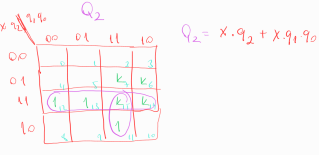 Q₂
x.q₂ q₁q₀
00 01 11 10
00 0 1 3 2
01 4 5 k₇ k₆
11 1₁₂ 1₁₃ k₁₅ k₁₄
10 8 9 1 11 10
Q₂ = x.q₂ + x.q₁q₀